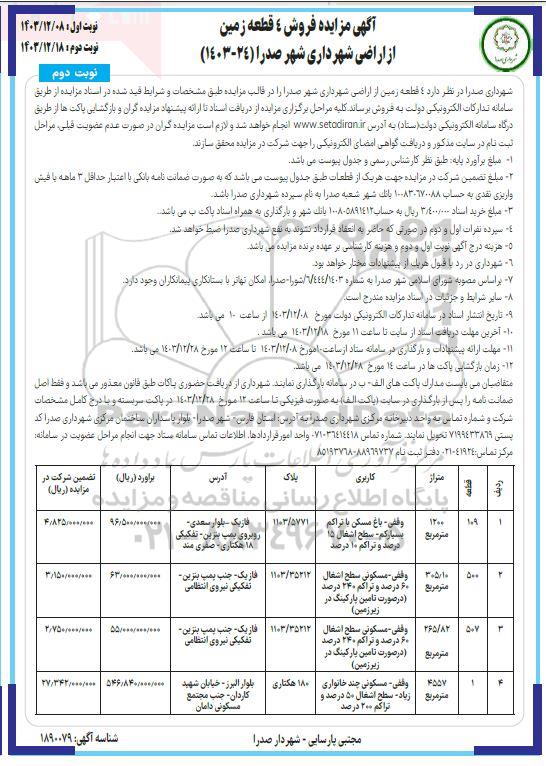 آگهی مزایده فروش ٤ قطعه زمین
از اراضی شهرداری شهر صدرا (۲۴-۱۴۰۳)
نوبت اول : ۱۴۰۳/۱۲/۰۸
نوبت دوم : ۱۴۰۳/۱۲/۱۸
نوبت دوم
شهرداری صدرا در نظر دارد ٤ قطعه زمین از اراضی شهرداری شهر صدرا را در قالب مزایده طبق مشخصات و شرایط قید شده در اسناد مزایده از طریق
سامانه تدارکات الکترونیکی دولت به فروش برساند. کلیه مراحل برگزاری مزایده از دریافت اسناد تا ارائه پیشنهاد مزایده گران و بازگشایی پاکت ها از طریق
درگاه سامانه الکترونیکی دولت(ستاد) به آدرس www.setadiran.ir انجام خواهد شد و لازم است مزایده گران در صورت عدم عضویت قبلی، مراحل
ثبت نام در سایت مذکور و دریافت گواهی امضای الکترونیکی را جهت شرکت در مزایده محقق سازند.
۱- مبلغ برآورد پایه: طبق نظر کارشناس رسمی و جدول پیوست می باشد.
۲- مبلغ تضمین شرکت در مزایده جهت هریک از قطعات طبق جدول پیوست می باشد که به صورت ضمانت نامه بانکی با اعتبار حداقل ۳ ماهه یا فیش
واریزی نقدی به حساب ۱۰۰۸۳۰۶۷۰۰۸۸ بانک شهر شعبه صدرا به نام سپرده شهرداری صدرا باشد.
۳- مبلغ خرید اسناد ۳/۴۰۰/۰۰۰ ریال به حساب ۱۰۰۸۰۵۸۹۱۴۱۲ بانک شهر و بارگذاری به همراه اسناد پاکت ب می باشد..
۴- سپرده نفرات اول و دوم در صورتی که حاضر به انعقاد قرارداد نشوند به نفع شهرداری صدرا ضبط خواهد شد.
۵- هزینه درج آگهی نوبت اول و دوم و هزینه کارشناسی بر عهده برنده مزایده می باشد.
۶- شهرداری در رد یا قبول هریک از پیشنهادات مختار خواهد بود.
۷- براساس مصوبه شورای اسلامی شهر صدرا به شماره ۶/۴۴۴/۱۴۰۳/شورا-صدرا، امکان تهاتر با بستانکاری پیمانکاران وجود دارد.
۸- سایر شرایط و جزئیات در اسناد مزایده مندرج است.
۹- تاریخ انتشار اسناد در سامانه تدارکات الکترونیکی دولت مورخ ۱۴۰۳/۱۲/۰۸ از ساعت ۱۰ می باشد.
۱۰- آخرین مهلت دریافت اسناد از سایت تا ساعت ۱۱ مورخ ۱۴۰۳/۱۲/۱۸ می باشد .
۱۱- مهلت ارائه پیشنهادات و بارگذاری در سامانه ستاد ازساعت۱۰مورخ ۱۴۰۳/۱۲/۰۸ تا ساعت ۱۲ مورخ ۱۴۰۳/۱۲/۲۸ می باشد.
۱۲- زمان بازگشایی پاکت ها در ساعت ۱۴ مورخ ۱۴۰۳/۱۲/۲۸ می باشد.
متقاضیان می بایست مدارک پاکت های الف- ب در سامانه بارگذاری نمایند. شهرداری از دریافت حضوری پاکات طبق قانون معذور می باشد و فقط اصل
ضمانت نامه را پس از بارگذاری در سایت (پاکت الف) به صورت فیزیکی تا ساعت ۱۲ مورخ ۱۴۰۳/۱۲/۲۸ در پاکت سربسته و با درج کامل مشخصات
شرکت و شماره تماس به واحد دبیرخانه مرکزی شهرداری صدرا به آدرس: استان فارس- شهر صدرا- بلوار پاسداران ساختمان مرکزی شهرداری صدرا کد
پستی ۷۱۹۹۴۳۳۸۶۹ تحویل نمایند. شماره تماس ۳۶۴۱۴۴۱۸-۰۷۱ واحد امور قراردادها. اطلاعات تماس سامانه ستاد جهت انجام مراحل عضویت در سامانه:
مرکز تماس:۴۱۹۳۴-۰۲۱ دفتر ثبت نام ۸۸۹۶۹۷۳۷-۸۵۱۹۳۷۶۸
ردیف قطعه متراژ کاربری پلاک آدرس برآورد (ریال) تضمین شرکت در مزایده (ریال)
۱ ۱۰۹ ۱۲۰۰ مترمربع وقفی- باغ مسکن با تراکم بسیارکم- سطح اشغال ۱۵ درصد و تراکم ۱۰ درصد ۱۱۰۳/۵۷۷۱ فازیک –بلوار سعدی- روبروی پمپ بنزین- تفکیکی ۱۸ هکتاری- صفری مند ۹۶/۵۰۰/۰۰۰/۰۰۰ ۴/۸۲۵/۰۰۰/۰۰۰
۲ ۵۰۰ ۳۰۵/۱۰ مترمربع وقفی-مسکونی سطح اشغال ۶۰ درصد و تراکم ۲۴۰ درصد (درصورت تامین پارکینگ در زیرزمین) ۱۱۰۳/۳۵۲۱۲ فازیک- جنب پمپ بنزین- تفکیکی نیروی انتظامی ۶۳/۰۰۰/۰۰۰/۰۰۰ ۳/۱۵۰/۰۰۰/۰۰۰
۳ ۵۰۷ ۲۶۵/۸۲ مترمربع وقفی-مسکونی سطح اشغال ۶۰ درصد و تراکم ۲۴۰ درصد (درصورت تامین پارکینگ در زیرزمین) ۱۱۰۳/۳۵۲۱۲ فازیک- جنب پمپ بنزین- تفکیکی نیروی انتظامی ۵۵/۰۰۰/۰۰۰/۰۰۰ ۲/۷۵۰/۰۰۰/۰۰۰
۴ ۱ ۴۵۵۷ مترمربع وقفی- مسکونی چند خانواری زیاد- سطح اشغال ۵۰ درصد و تراکم ۲۰۰ درصد ۱۸۰ هکتاری بلوار البرز - خیابان شهید کاردان- جنب مجتمع مسکونی دامان ۵۴۶/۸۴۰/۰۰۰/۰۰۰ ۲۷/۳۴۲/۰۰۰/۰۰۰
مجتبی پارسایی - شهردار صدرا
شناسه آگهی: ۱۸۹۰۰۷۹